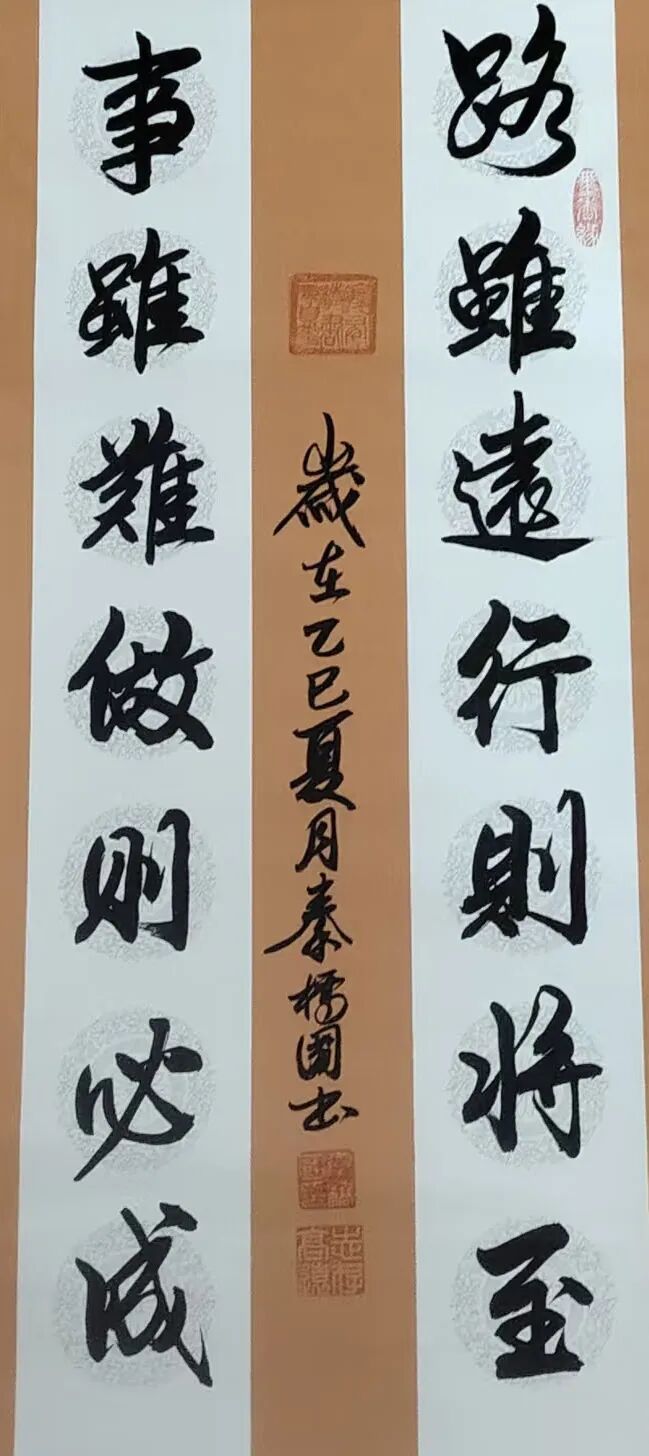 路雖遠行則將至
事雖難做則必成
歲在乙巳夏月秦橋國書